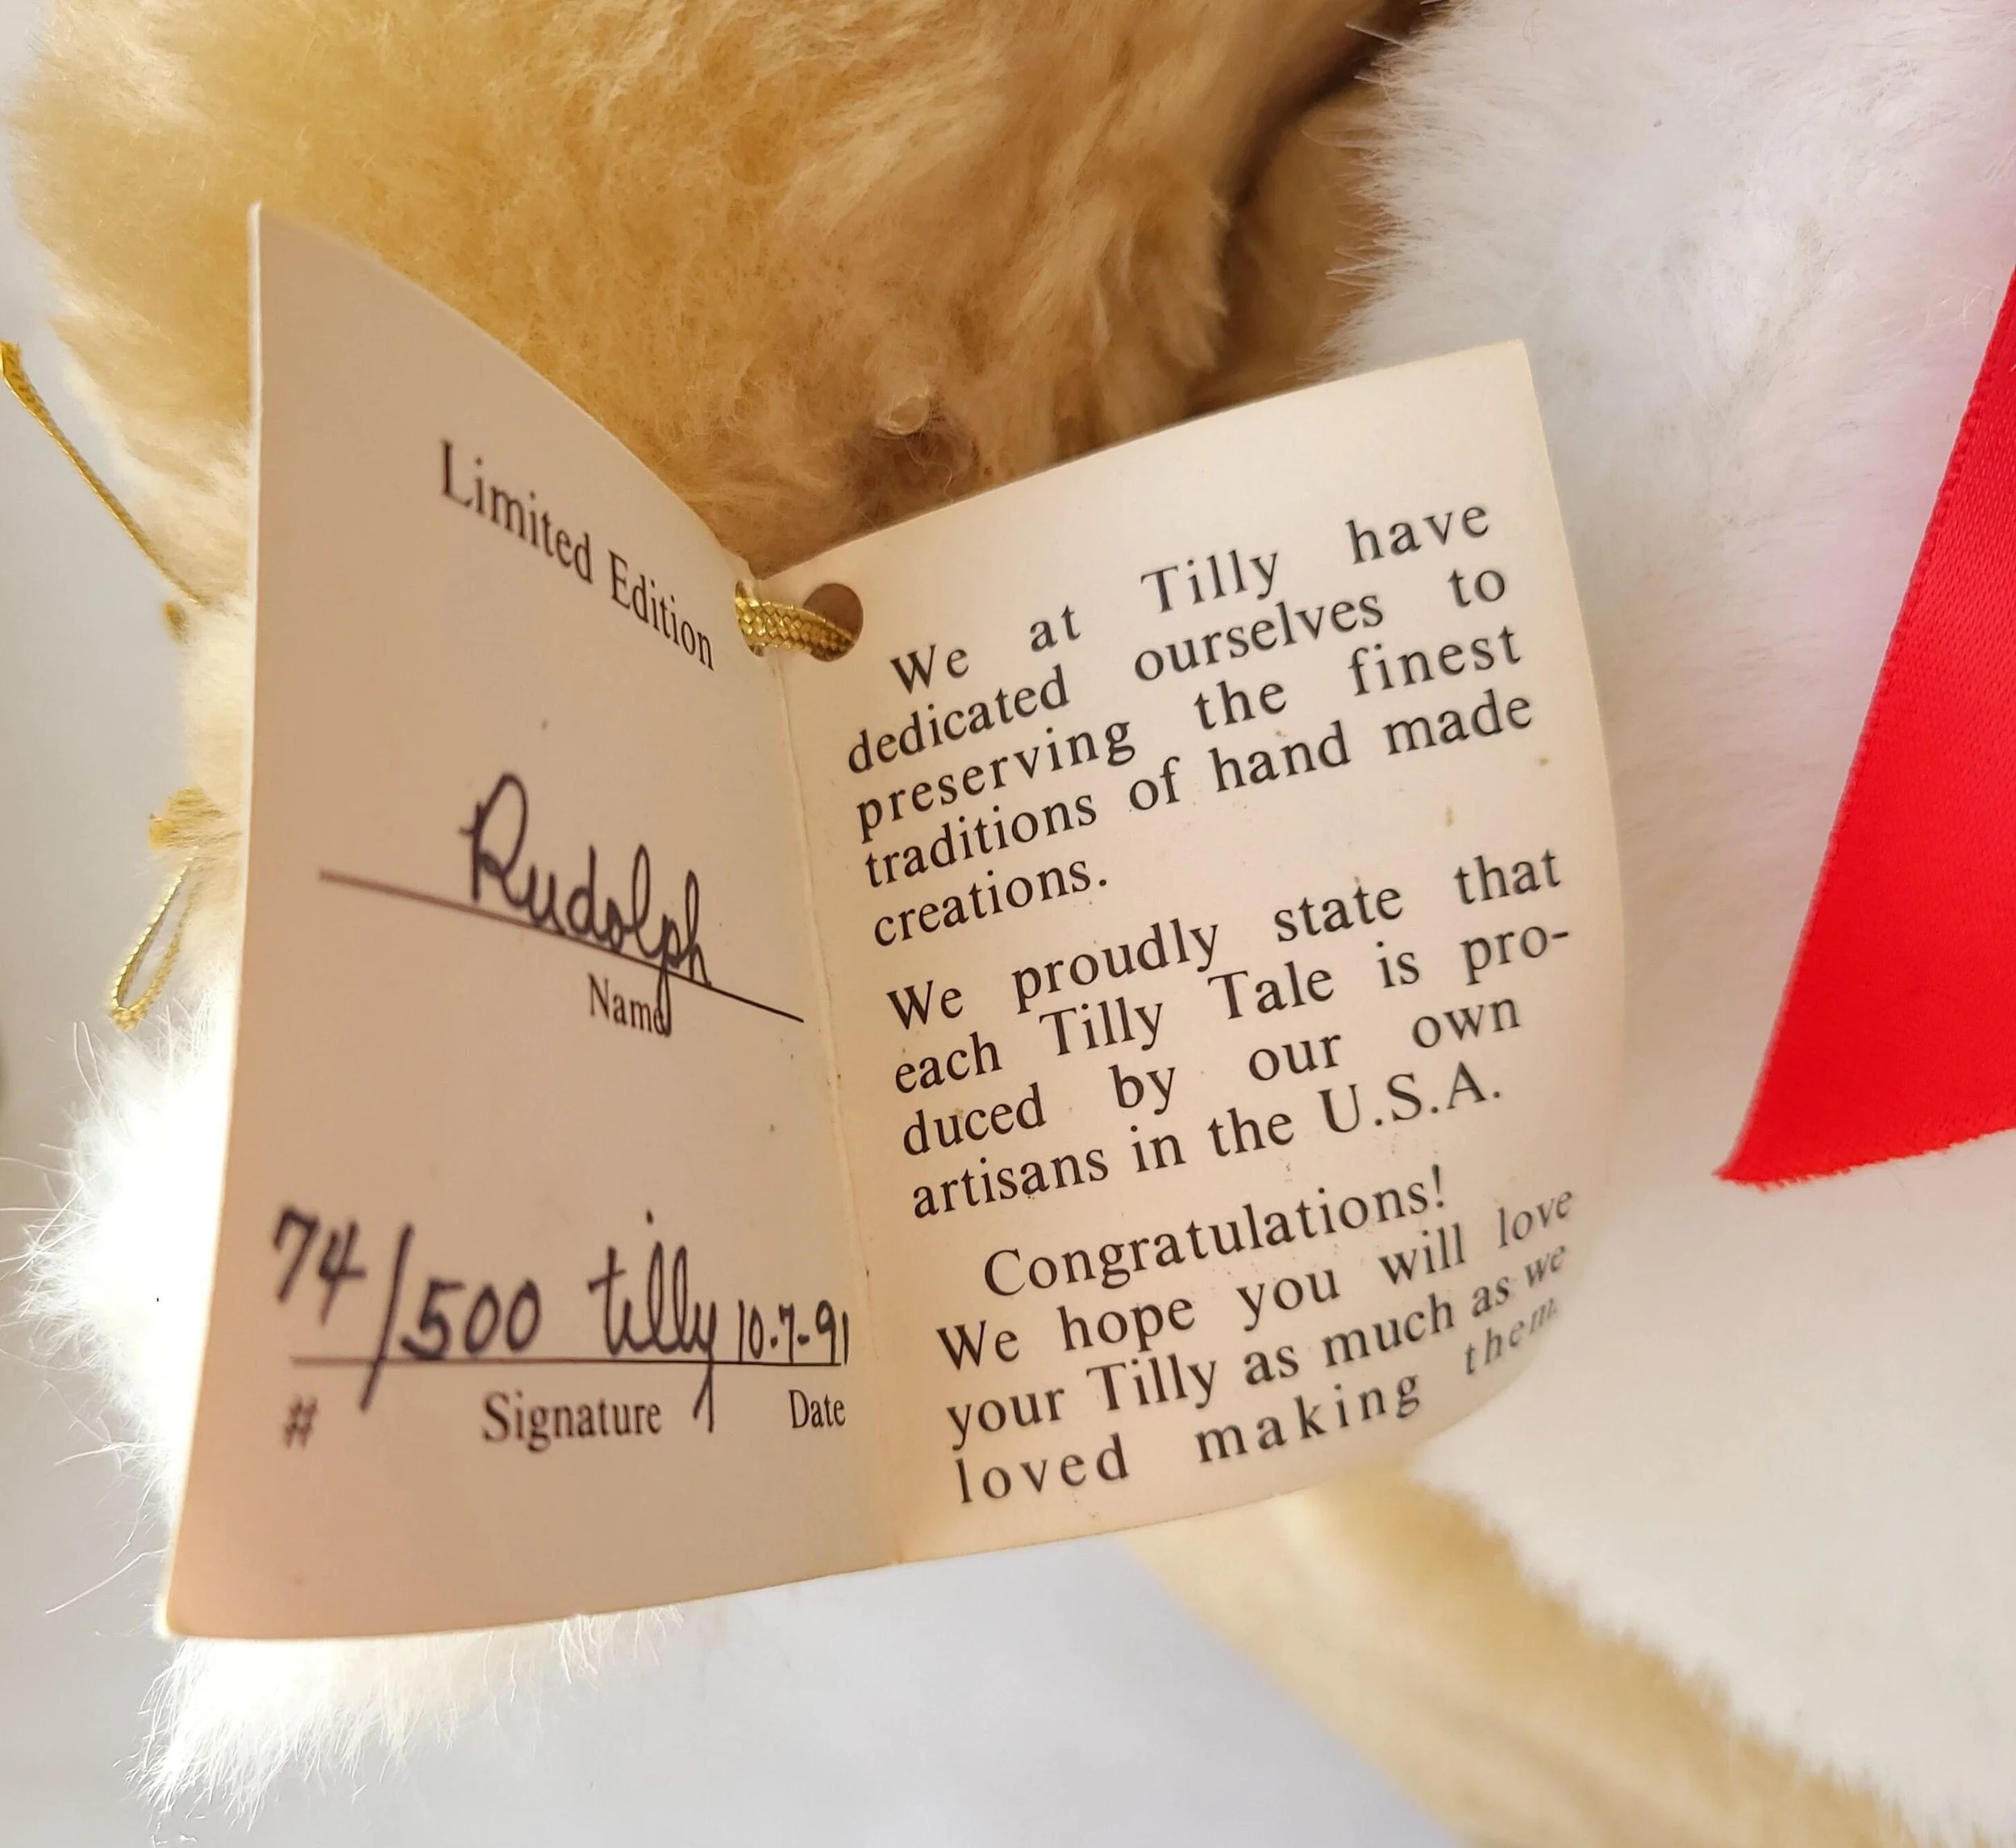 Limited Edition
Rudolph
Name
74/500 tilly 10-7-91
# Signature Date
We at Tilly have
dedicated ourselves to
preserving the finest
traditions of hand made
creations.
We proudly state that
each Tilly Tale is pro-
duced by our own
artisans in the U.S.A.
Congratulations!
We hope you will love
your Tilly as much as we
loved making them